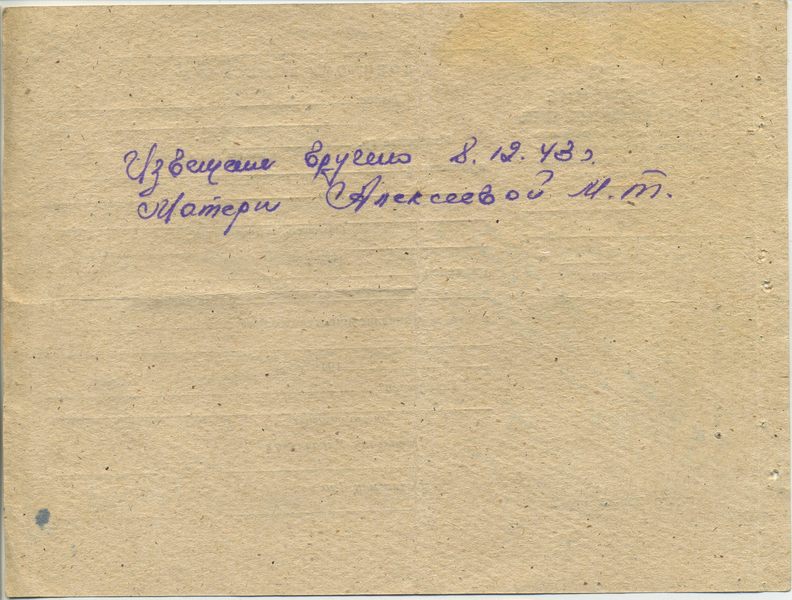 Извещение вручено 8.12.43 г.
Матери Алексеевой М.Т.